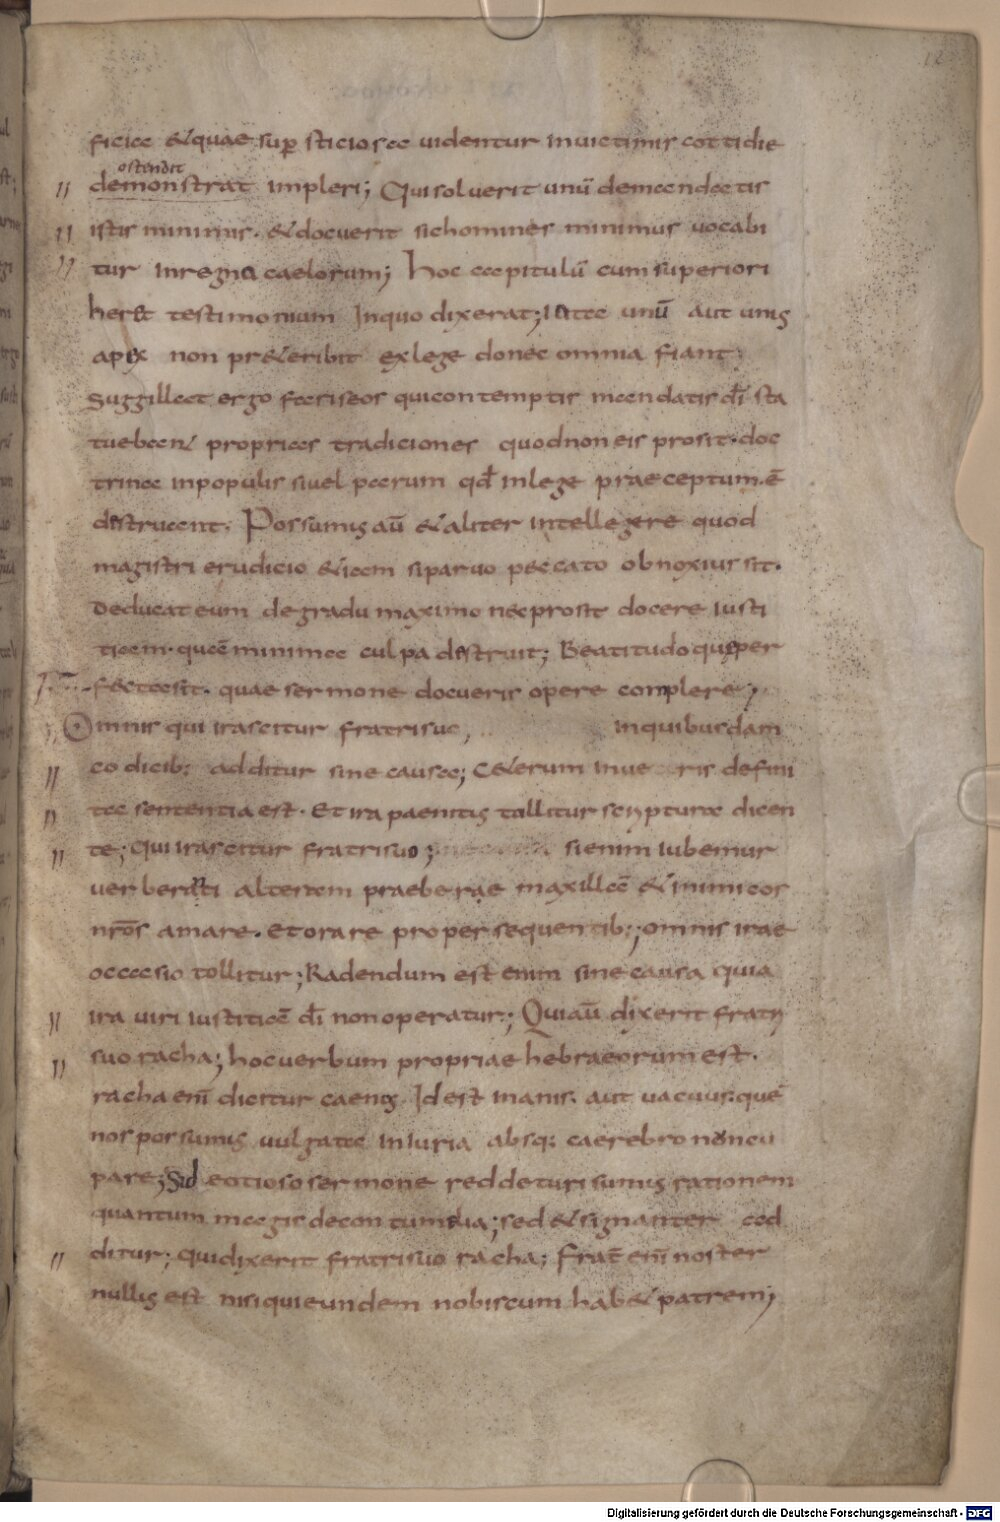 12
ficiae & quae sup sticiosae uidentur inuictimis cottidie
ostendit
demonstrat impleri; Qui soluerit unū demandatis
istis minimis. & docuerit sic homines minimus uocabi
tur in regna caelorum; Hoc capitulū cum superiori
her& testimonium In quo dixerat; Iota unū aut unus
apex non pr&eribit ex lege donec omnia fiant;
Suggillat ergo fariseos qui contemptis mandatis dī sta
tueban& proprias tradiciones quod non eis prosit. doc
trina in populis si uel paruum qđ in lege praeceptum. ē
destruant. Possumus aū & aliter intellegere quod
magistri erudicio &iam si paruo peccato obnoxius sit.
Deducat eum de gradu maximo nec prosit docere iusti
tiam. quā minima culpa destruit; Beatitudo quę per
fecta sit. quae sermone docueris opere complere;
Omnis qui irascitur fratri suo, in quibusdam
codicib: additur sine causa; C&erum in ueris defini
ta sententia est. Et ira paenitus tollitur scripturae dicen
te; Qui irascitur fratri suo; si enim iubemur
uerberanti alteram praebere maxillā & inimicos
nrōs amare. Et orare pro persequentib:; omnis irae
occasio tollitur; Radendum est enim sine causa quia
ira uiri iustitiā dī non operatur; Qui aū dixerit fratri
suo racha; hoc uerbum propriae hebraeorum est.
racha enī dicitur caenos Id est inanis. aut uacuus. quē
nos possumus uulgata iniuria absq: caerebro noncu
pare; Sid e otioso sermone reddeturi sumus rationem
quantum magis de contumelia; sed & signanter ad
ditur; qui dixerit fratri suo racha; Frat̄ enī noster
nullus est nisi qui eundem nobiscum hab& patrem;
Digitalisierung gefördert durch die Deutsche Forschungsgemeinschaft - DFG